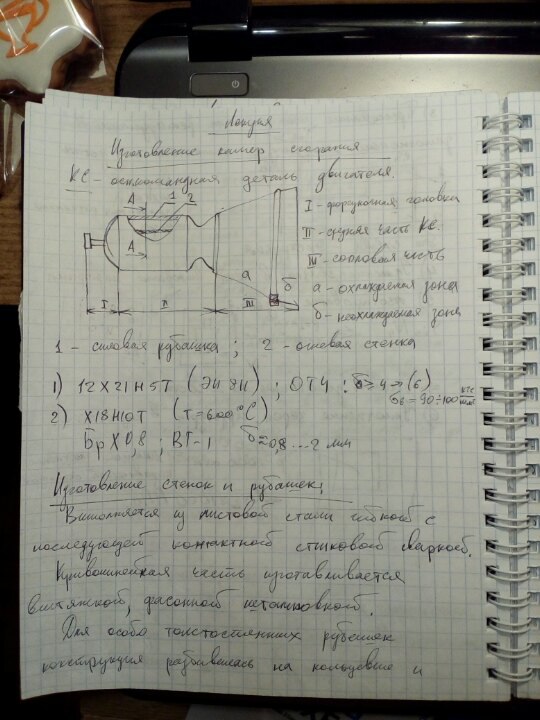 Лекция
Изготовление камер сгорания
КС - основная деталь двигателя.
А 1 2
А
а б
I II III
I - форсуночная головка
II - средняя часть КС.
III - сопловая часть
а - охлаждаемая зона
б - неохлаждаемая зона
1 - силовая рубашка ; 2 - огневая стенка
1) 12Х21Н5Т (ЭИ 811) ; ОТ4 : δ ≥ 4 → (6)
σв = 90÷100 кгс/мм²
2) Х18Н10Т (T = 600°C)
БрХ0,8 ; ВТ-1 δ = 0,8 ... 2 мм
Изготовление стенок и рубашек:
Выполняется из листовой стали гибкой с
последующей контактной стыковой сваркой.
Криволинейная часть изготавливается
вытяжкой, фасонной штамповкой.
Для особо толстостенных рубашек
конструкция разбивалась на кольцевые и